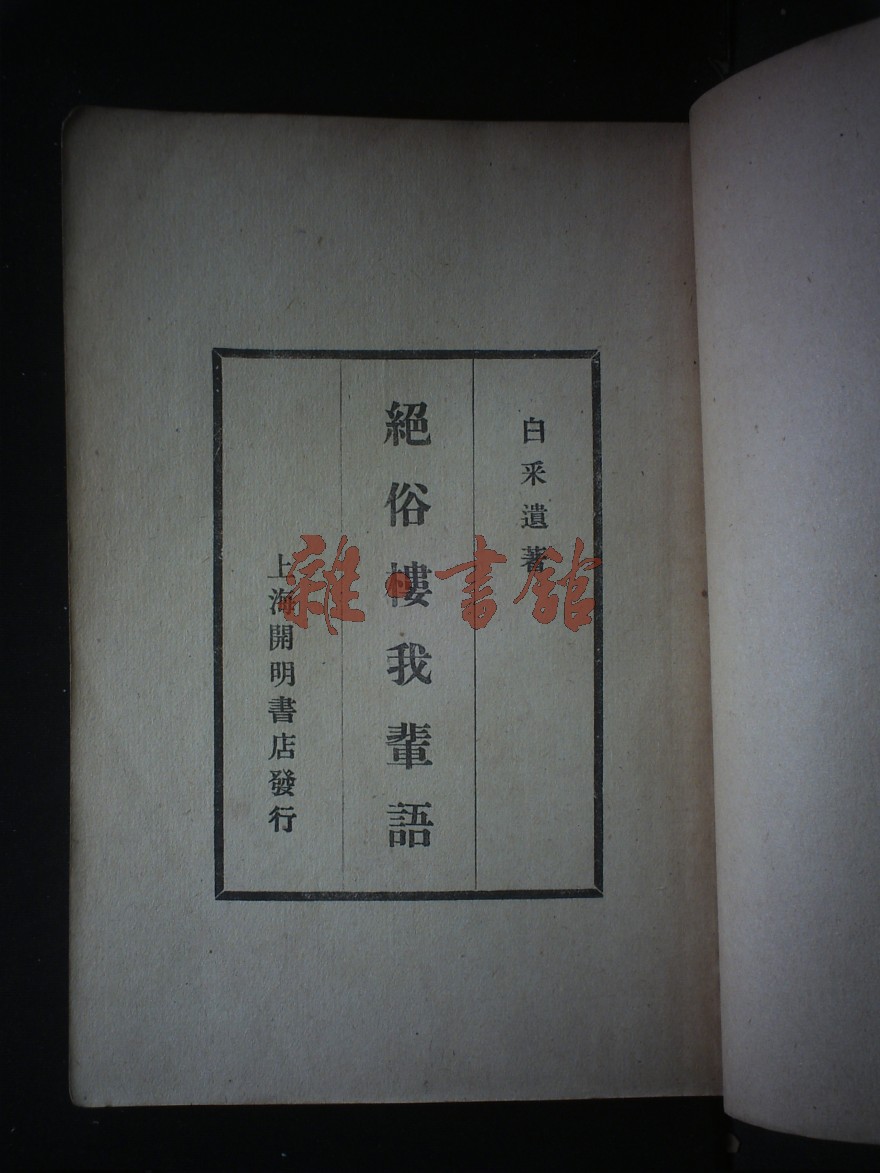 白采遺著
絕俗樓我輩語
上海開明書店發行
雜·書館